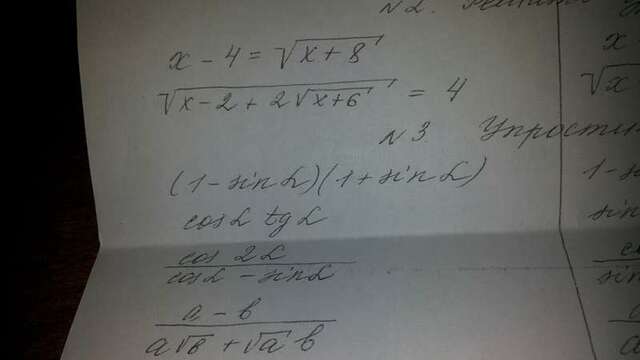 N2. Решить
x - 4 = √(x + 8)
√(x - 2 + 2√(x+6)) = 4
N3. Упрости
(1 - sin α)(1 + sin α)
cos α tg α
cos 2α / (cos α - sin α)
(a - b) / (a√b + √a b)
x
√x
1 - s
sin